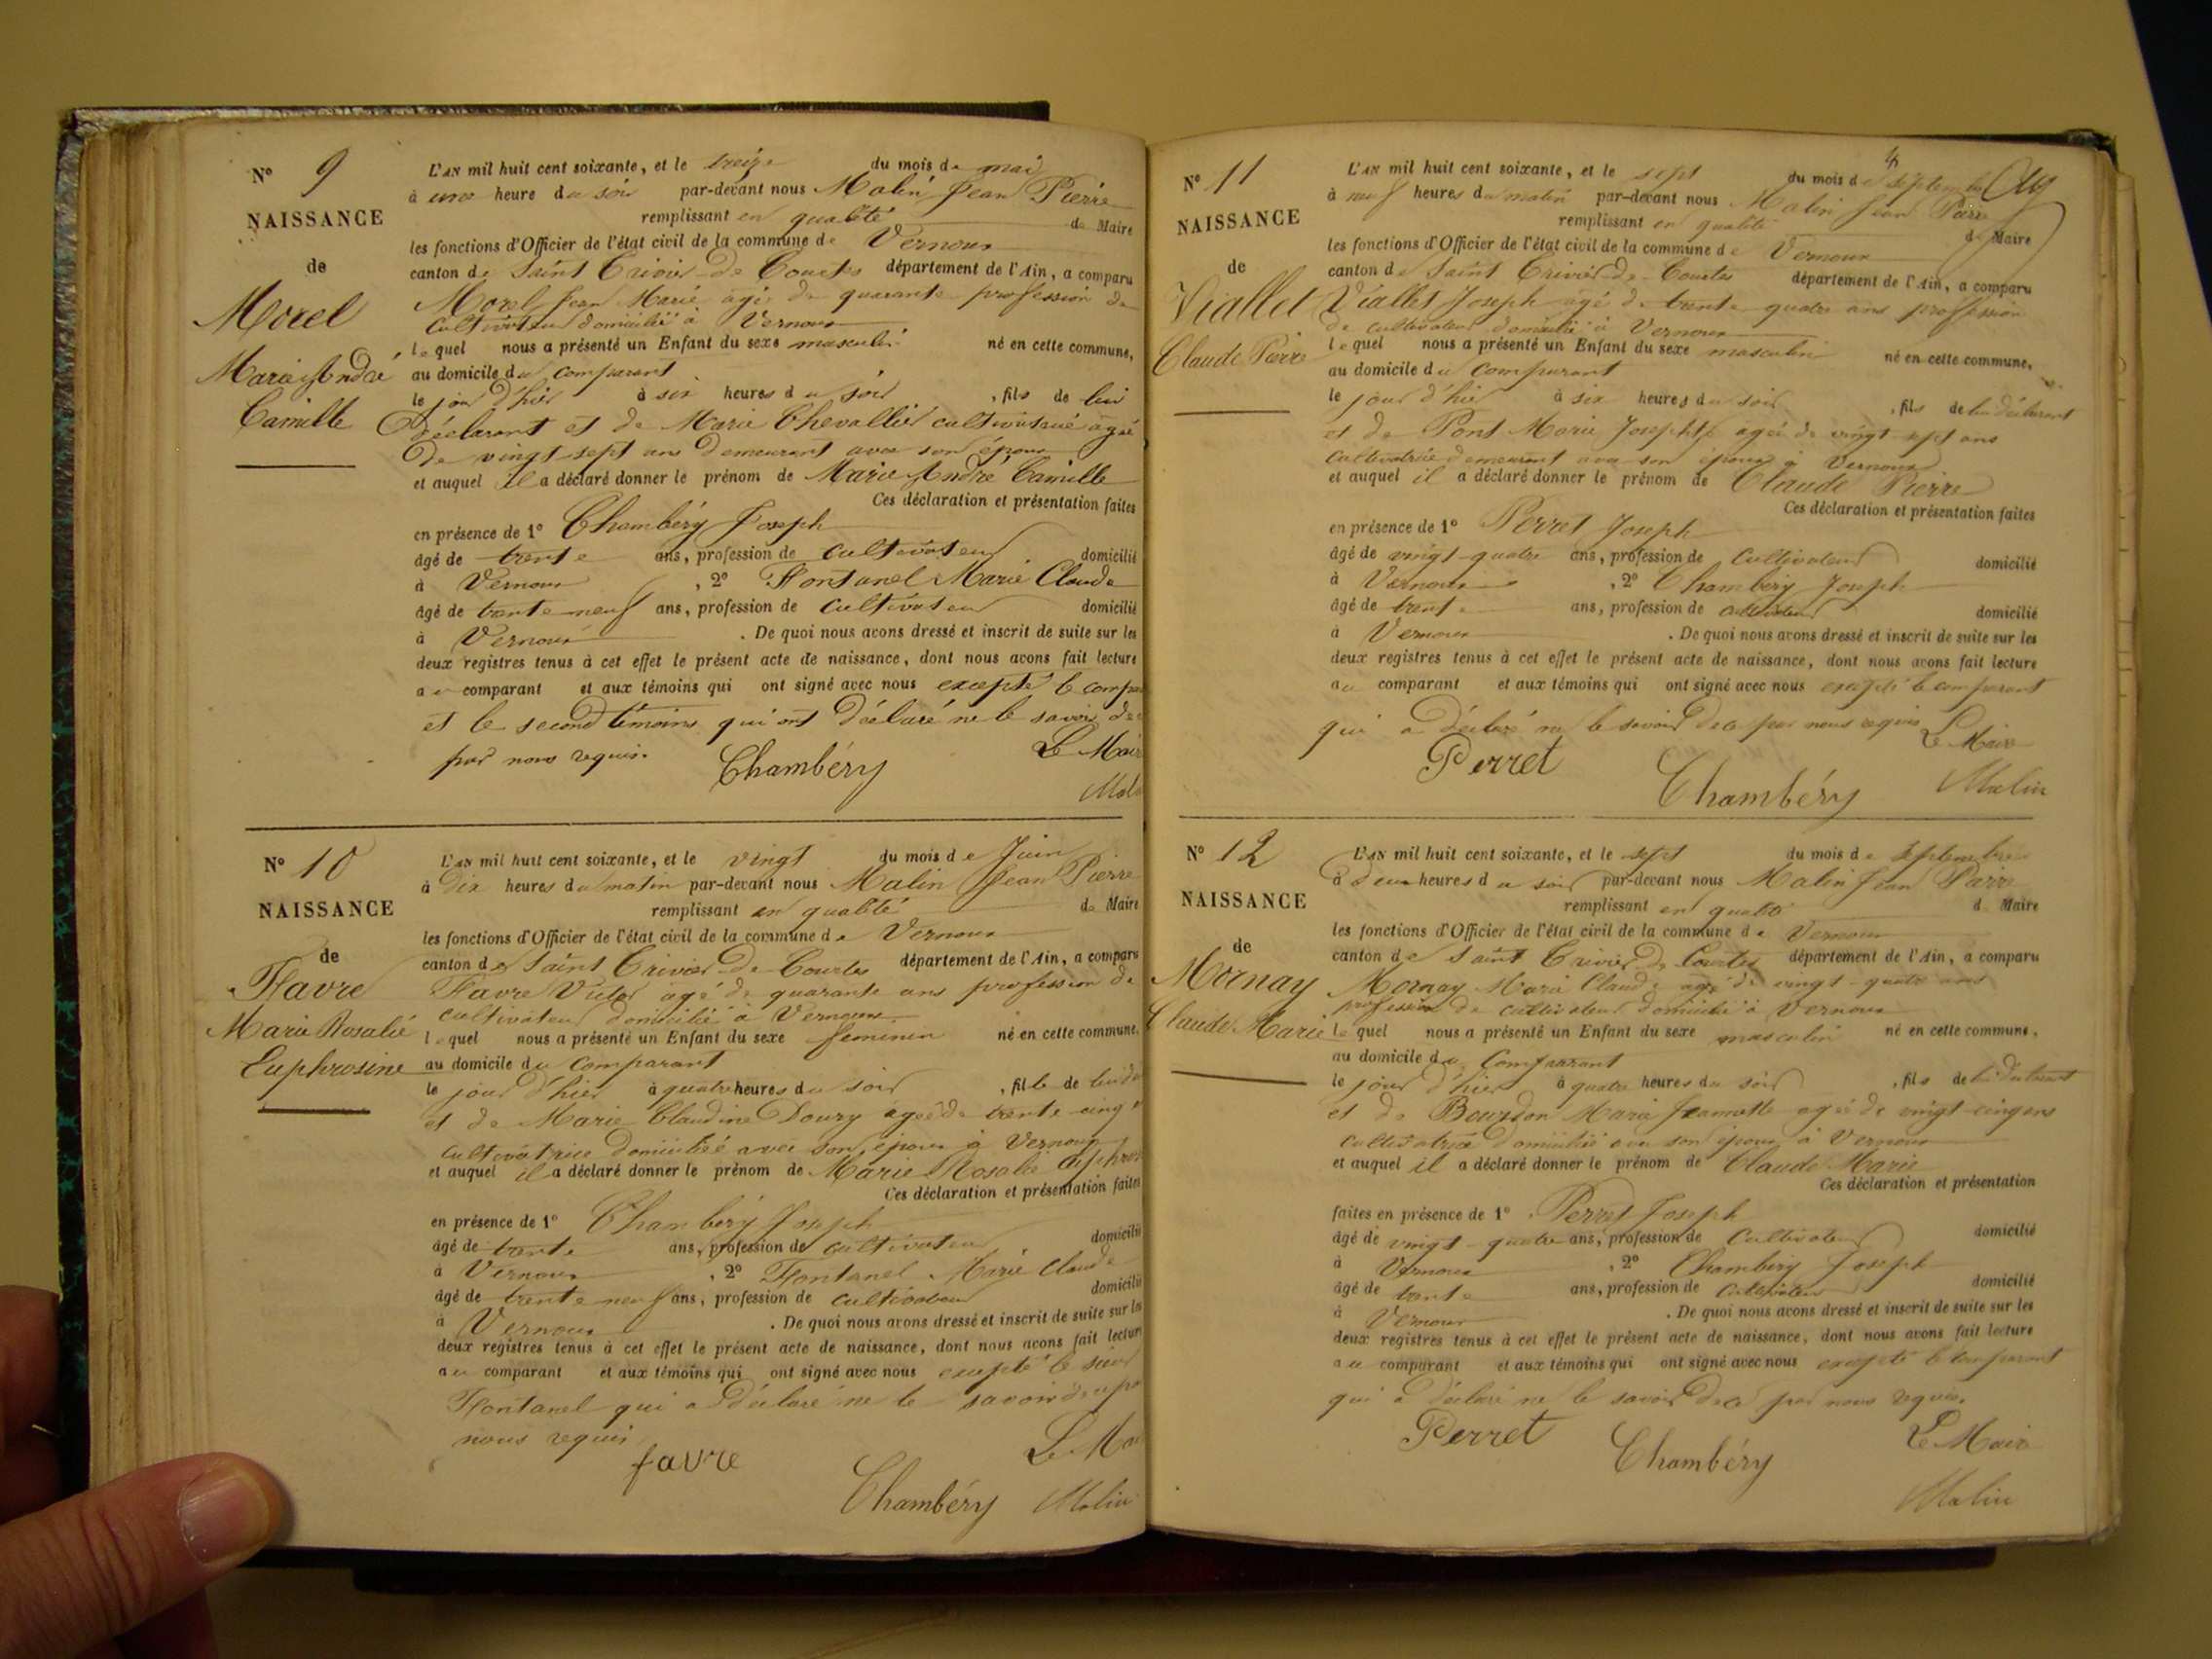 N° 9
NAISSANCE
de
Morel
Marie André
Camille
L'AN mil huit cent soixante, et le treize du mois de mai
à une heure du soir par-devant nous Malin Jean Pierre
remplissant en qualité de Maire
les fonctions d'Officier de l'état civil de la commune de Vernoux
canton de Saint Trivier de Courtes département de l'Ain, a comparu
Morel Jean Marie agé de quarante profession de
cultivateur domicilié à Vernoux
lequel nous a présenté un Enfant du sexe masculin né en cette commune,
au domicile du comparant
le jour d'hier à six heures du soir, fils de lui
déclarant et de Marie Chevallier cultivatrice agée
de vingt sept ans demeurant avec son époux
et auquel il a déclaré donner le prénom de Marie André Camille
Ces déclaration et présentation faites
en présence de 1° Chambéry Joseph
âgé de trente ans, profession de cultivateur domicilié
à Vernoux, 2° Fontanel Marie Claude
âgé de trente neuf ans, profession de cultivateur domicilié
à Vernoux. De quoi nous avons dressé et inscrit de suite sur les
deux registres tenus à cet effet le présent acte de naissance, dont nous avons fait lecture
au comparant et aux témoins qui ont signé avec nous excepté le compa
et le second témoins qui ont déclaré ne le savoir de
par nous requis. Le Mair
Chambéry Mal
N° 10
NAISSANCE
de
Favre
Marie Rosalie
Euphrosine
L'AN mil huit cent soixante, et le vingt du mois de Juin
à Dix heures du matin par-devant nous Malin Jean Pierre
remplissant en qualité de Maire
les fonctions d'Officier de l'état civil de la commune de Vernoux
canton de Saint Trivier de Courtes département de l'Ain, a comparu
Favre Victor agé de quarante ans profession de
cultivateur domicilié à Vernoux
lequel nous a présenté un Enfant du sexe feminin né en cette commune,
au domicile du comparant
le jour d'hier à quatre heures du soir, fille de lui
et de Marie Claudine Doury agée de trente cinq
cultivatrice domiciliée avec son époux à Vernoux
et auquel il a déclaré donner le prénom de Marie Rosalie
Ces déclaration et présentation faites
en présence de 1° Chambéry Joseph
âgé de trente ans, profession de cultivateur domicilié
à Vernoux, 2° Fontanel Marie Claude
âgé de trente neuf ans, profession de cultivateur domicilié
à Vernoux. De quoi nous avons dressé et inscrit de suite sur les
deux registres tenus à cet effet le présent acte de naissance, dont nous avons fait lecture
au comparant et aux témoins qui ont signé avec nous excepté le
Fontanel qui a déclaré ne le savoir
nous requis Le Mai
favre
Chambéry Malin
N° 11
NAISSANCE
de
Viallet
Claude Pierre
L'AN mil huit cent soixante, et le sept du mois de septembre
à neuf heures du matin par-devant nous Malin Jean Pierre
remplissant en qualité de Maire
les fonctions d'Officier de l'état civil de la commune de Vernoux
canton de Saint Trivier de Courtes département de l'Ain, a comparu
Viallet Joseph agé de trente quatre ans profession
de cultivateur domicilié à Vernoux
lequel nous a présenté un Enfant du sexe masculin né en cette commune,
au domicile du comparant
le jour d'hier à six heures du soir, fils de lui déclarant
et de Pont Marie Josephte agée de vingt sept ans
cultivatrice demeurant avec son époux à Vernoux
et auquel il a déclaré donner le prénom de Claude Pierre
Ces déclaration et présentation faites
en présence de 1° Perret Joseph
âgé de vingt-quatre ans, profession de cultivateur domicilié
à Vernoux, 2° Chambéry Joseph
âgé de trente ans, profession de cultivateur domicilié
à Vernoux. De quoi nous avons dressé et inscrit de suite sur les
deux registres tenus à cet effet le présent acte de naissance, dont nous avons fait lecture
au comparant et aux témoins qui ont signé avec nous excepté le comparant
qui a déclaré ne le savoir de ce par nous requis Le Maire
Perret
Chambéry Malin
N° 12
NAISSANCE
de
Mornay
Claude Marie
L'AN mil huit cent soixante, et le sept du mois de septembre
à deux heures du soir par-devant nous Malin Jean Pierre
remplissant en qualité de Maire
les fonctions d'Officier de l'état civil de la commune de Vernoux
canton de Saint Trivier de Courtes département de l'Ain, a comparu
Mornay Marie Claude agé de vingt-quatre ans
profession de cultivateur domicilié à Vernoux
lequel nous a présenté un Enfant du sexe masculin né en cette commune,
au domicile du Comparant
le jour d'hier à quatre heures du soir, fils de lui déclarant
et de Bourdon Marie Jeannette agée de vingt-cinq ans
cultivatrice domiciliée avec son époux à Vernoux
et auquel il a déclaré donner le prénom de Claude Marie
Ces déclaration et présentation
faites en présence de 1° Perret Joseph
âgé de vingt-quatre ans, profession de Cultivateur domicilié
à Vernoux, 2° Chambéry Joseph
âgé de trente ans, profession de Cultivateur domicilié
à Vernoux. De quoi nous avons dressé et inscrit de suite sur les
deux registres tenus à cet effet le présent acte de naissance, dont nous avons fait lecture
au comparant et aux témoins qui ont signé avec nous excepté le comparant
qui a déclaré ne le savoir de ce par nous requis.
Perret Le Maire
Chambéry
Malin